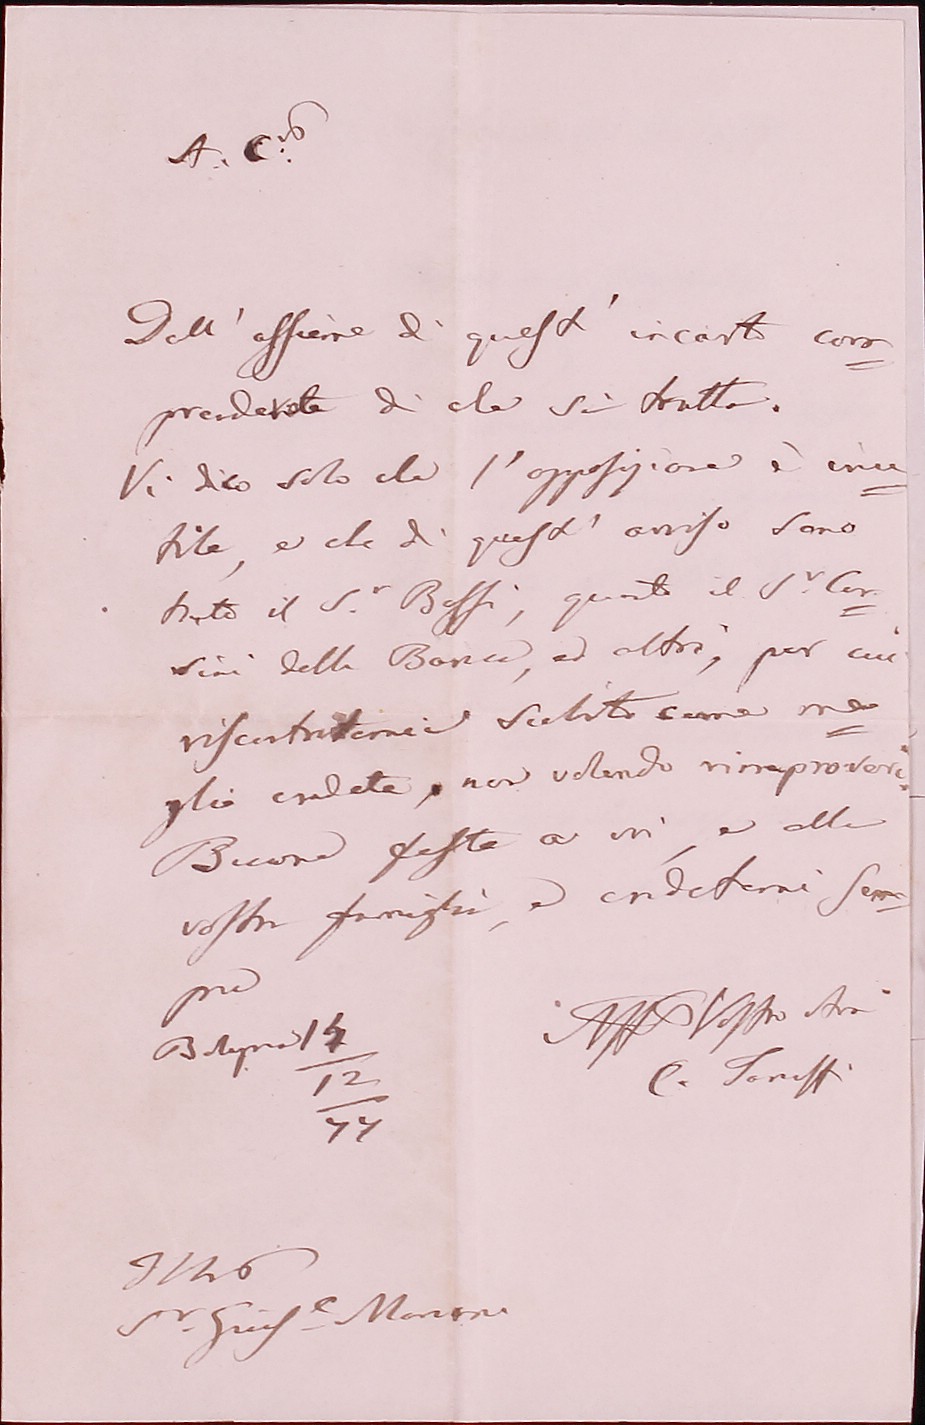 A. C.º
Dall' assieme di quest' incarto com=
prenderete di che si tratta.
Vi dico solo che l'opposizione è inu=
tile, e che di quest' avviso sono
tanto il S.r Bassi, quanto il S.r Cor=
sini della Banca, ed altri, per cui
riscontratemi subito come me=
glio credete, non volendo rimproveri.
Buone feste a voi, e alla
vostra famiglia, e credetemi sem=
pre
Bologna 14
12
77
Aff.º Vostro Am
C.
Ill.mo
S.r Gius.e